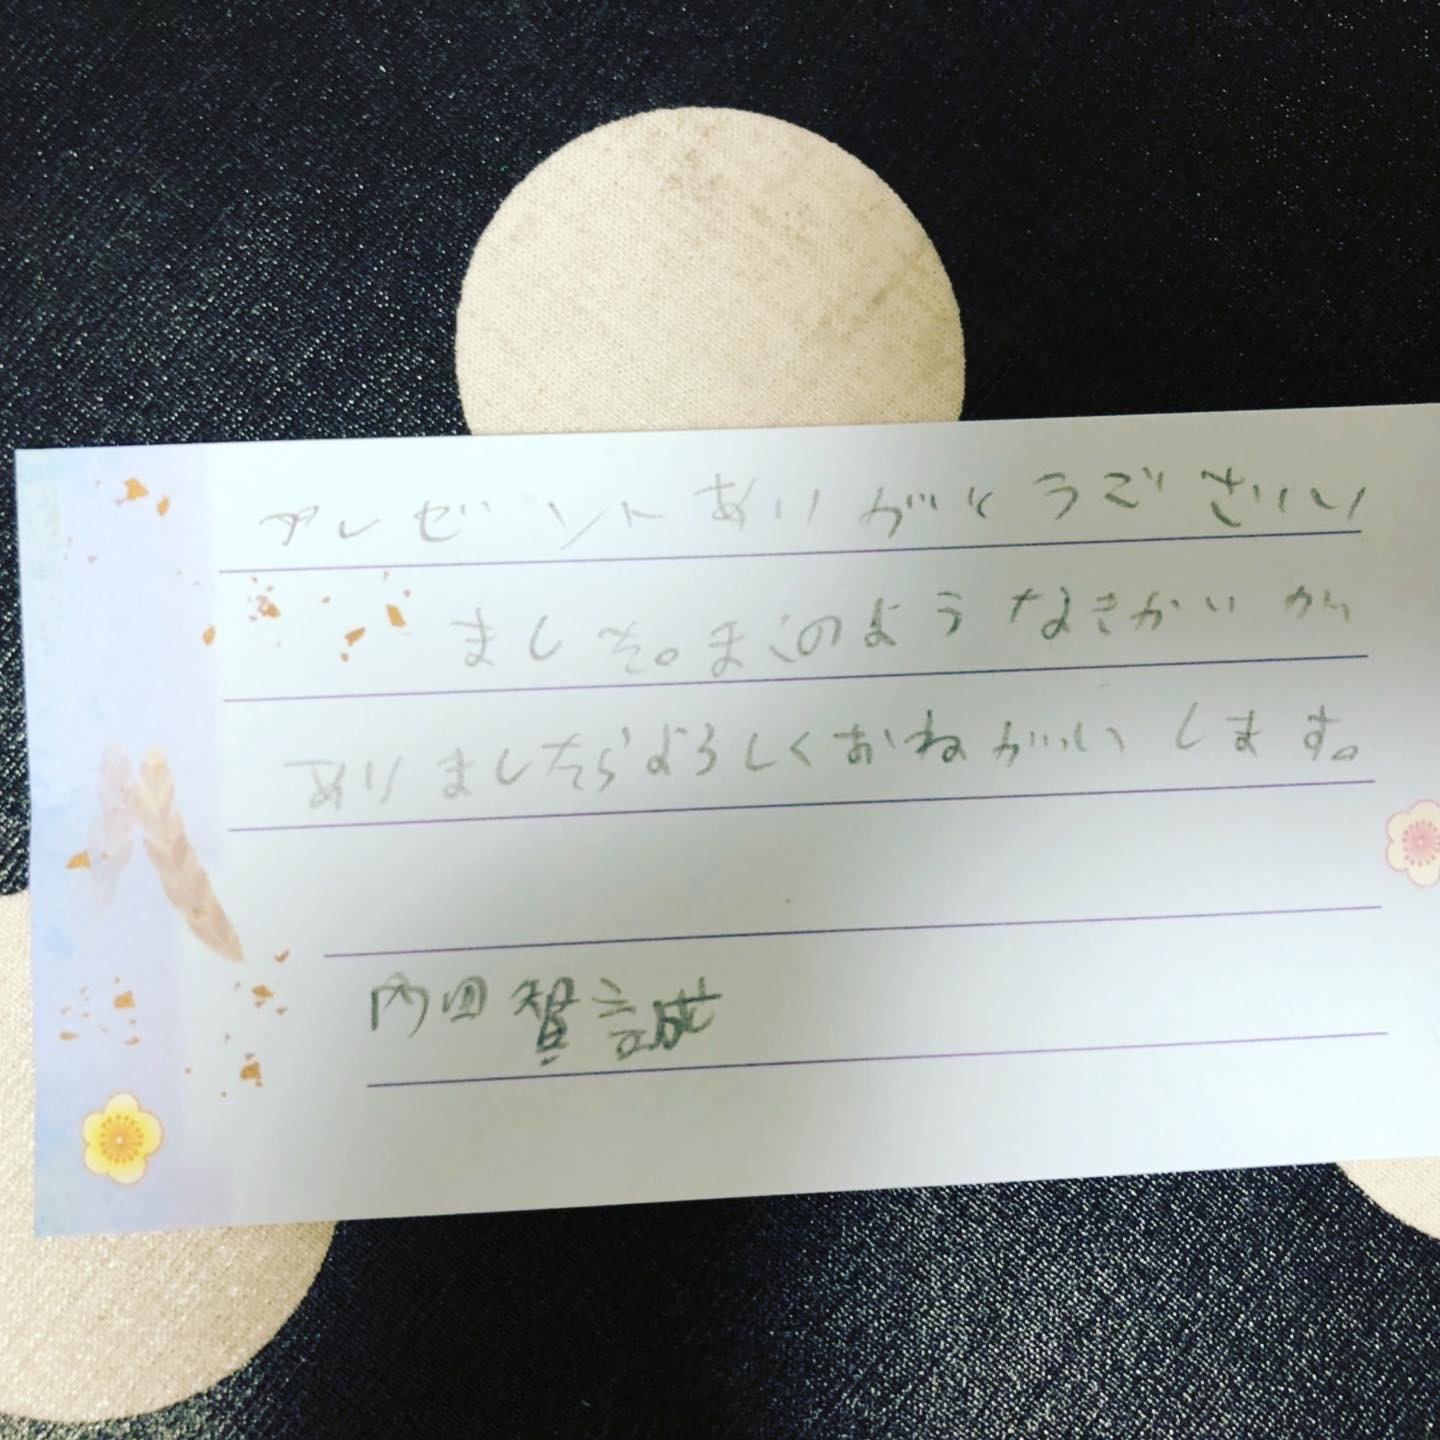 プレゼントありがとうございい
ました。またこのようなきかいが
ありましたらよろしくおねがいします。
内田賢誠